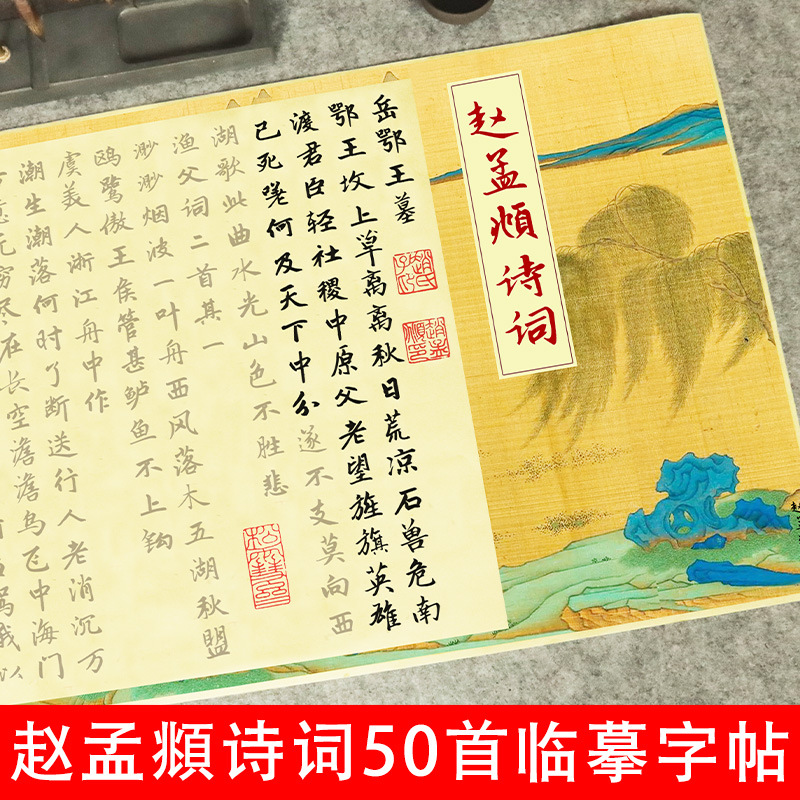 赵孟頫诗词
岳鄂王墓
鄂王坟上草离离秋日荒凉石兽危南
渡君臣轻社稷中原父老望旌旗英雄
已死嗟何及天下中分遂不支莫向西
湖歌此曲水光山色不胜悲
渔父词二首其一
渺渺烟波一叶舟西风落木五湖秋盟
鸥鹭傲王侯管甚鲈鱼不上钩
虞美人浙江舟中作
潮生潮落何时了断送行人老消沉万
意无穷尽在长空澹澹鸟飞中海门
驾我以
赵孟頫诗词50首临摹字帖